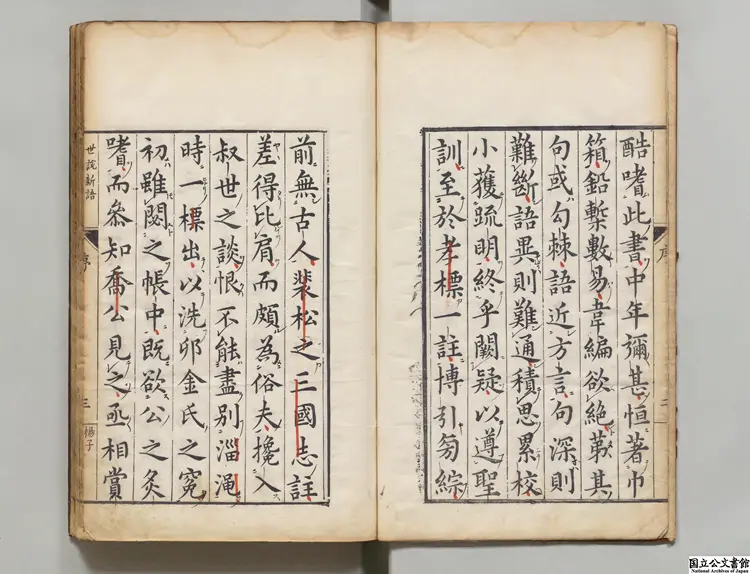 酷嗜此書中年彌甚恒著巾
箱鉛槧數易韋編欲絕第其
句或勾棘語近方言句深則
難斷語異則難通積思累校
小獲疏明終乎闕疑以遵聖
訓至於孝標一註博引旁綜
前無古人裴松之三國志註
差得比肩而頗為俗夫攙入
叔世之談恨不能盡別淄澠
時一標出以洗卯金氏之冤
初雖閟之帳中旣欲公之炙
嗜而叅知喬公見之亟相賞
世說新語
序
三
楊子
國立公文書館
National Archives of Japan